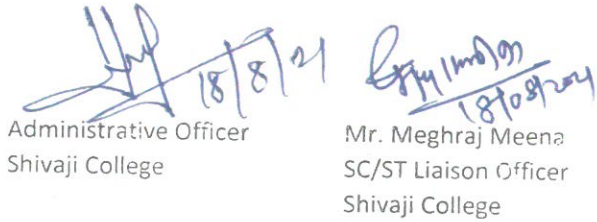 18/8/21
Administrative Officer
Shivaji College
18/08/2021
Mr. Meghraj Meena
SC/ST Liaison Officer
Shivaji College